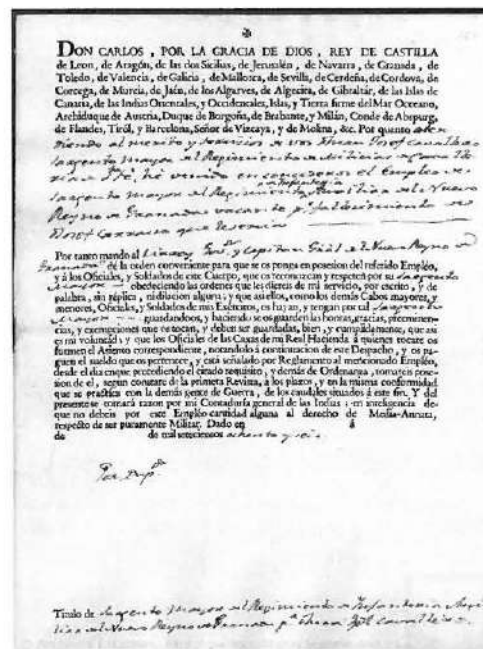 DON CARLOS , POR LA GRACIA DE DIOS , REY DE CASTILLA
de Leon, de Aragón, de las dos Sicilias, de Jerusalén , de Navarra, de Granada , de
Toledo, de Valencia , de Galicia , de Mallorca, de Sevilla, de Cerdeña, de Cordova, de
Corcega, de Murcia, de Jaén, de los Algarves, de Algecira, de Gibraltár, de las Islas de
Canaria, de las Indias Orientales, y Occidentales, Islas, y Tierra firme del Mar Occeano,
Archiduque de Austria, Duque de Borgoña, de Brabante, y Milán, Conde de Abspurg,
de Flandes, Tiról, y Barcelona, Señor de Vizcaya, y de Molina, &c. Por quanto aten
diendo al merito y servicios de vos
Sargento mayor del Regimiento de Milicias
he venido en conferiros el Empleo de
Sargento mayor del Regimiento de Infanteria Auxiliar del Nuevo
Reyno de Granada vacante por fallecimiento de
Josef que le servia
Por tanto mando al Virrey, y Capitan Gral del Nuevo Reyno de
Granada dé la orden conveniente para que se os ponga en posesion del referido Empléo,
y á los Oficiales, y Soldados de este Cuerpo, que os reconozcan y respeten por su Sargento
Mayor obedeciendo las ordenes que les diereis de mi servicio, por escrito, y de
palabra, sin réplica, ni dilacion alguna; y que asi ellos, como los demás Cabos mayores, y
menores, Oficiales, y Soldados de mis Exércitos, os hayan, y tengan por tal Sargento
Mayor guardandoos, y haciendo se os guarden las honras, gracias, preeminen-
cias, y exempciones que os tocan, y deben ser guardadas, bien, y cumplidamente, que asi
es mi voluntad; y que los Oficiales de las Caxas de mi Real Hacienda á quienes tocáre os
formen el Asiento correspondiente, notandolo á continuacion de este Despacho, y os pa-
guen el sueldo que os pertenece, y está señalado por Reglamento al mencionado Empléo,
desde el dia en que precediendo el citado requisito, y demás de Ordenanza, tomareis pose-
sion de el, segun constáre de la primera Revista, á los plazos, y en la misma conformidad
que se practica con la demás gente de Guerra, de los caudales situados á este fin. Y del
presente se tomará razon por mi Contaduría general de las Indias : en inteligencia de
que no debeis por este Empléo cantidad alguna al derecho de Media-Annata,
respecto de ser puramente Militar. Dado en á
de de mil setecientos ochenta y seis
Por Dupdo
Titulo de Sargento Mayor del Regimiento de Infanteria Auxi
liar del Nuevo Reyno de Granada pa